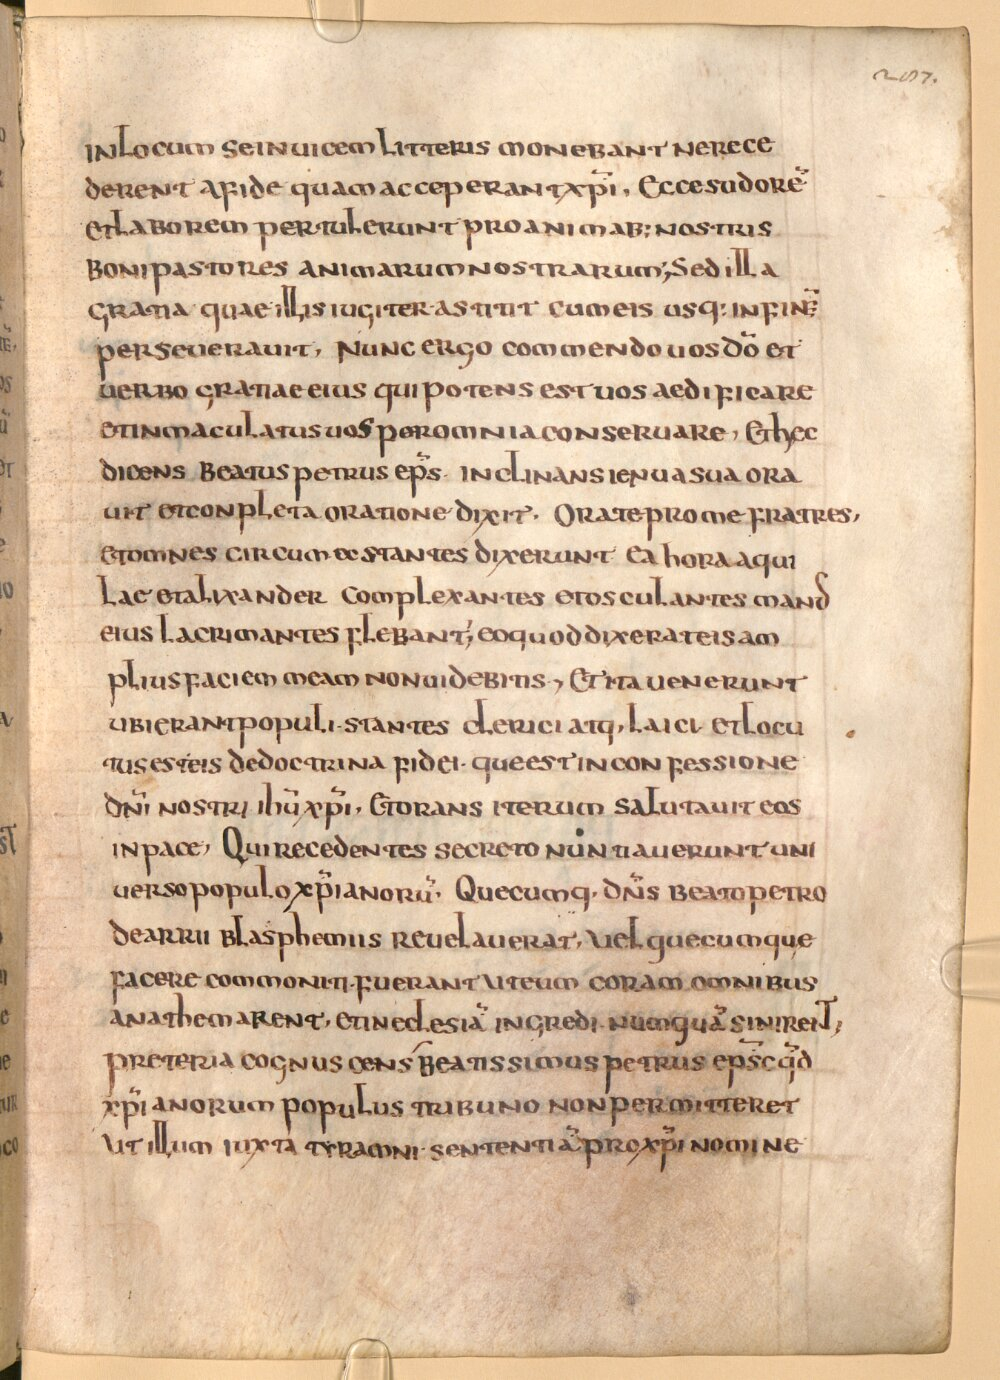 207.
in locum se inuicem litteris monebant ne rece
derent a fide quam acceperant xp̄i, Ecce sudorē
et laborem pertulerunt pro animab; nostris
boni pastores animarum nostrarum; Sed illa
gratia quae illis iugiter astitit cum eis usq: in finē;
perseuerauit, Nunc ergo commendo uos dō et
uerbo gratiae eius qui potens est uos aedificare
et inmaculatus uos per omnia conseruare, Et hec
dicens beatus petrus ep̄s. inclinans ienua sua ora
uit et conpleta oratione dixit. Orate pro me fratres,
et omnes circum exstantes dixerunt ea hora aqui
lae et alixander complexantes et osculantes man
eius lacrimantes flebant; eo quod dixerat eis am
plius faciem meam non uidebitis, Et ita uenerunt
ubi erant populi. stantes clerici atq, laici. et locu
tus est eis de doctrina fidei. que est in confessione
dn̄i nostri ihū xp̄i, Et orans iterum salutauit eos
in pace, Qui recedentes secreto nuntiauerunt uni
uerso populo xp̄ianorū. Quecumq. dn̄s beato petro
de arrii blasphemiis reuelauerat, uel quecumque
facere commoniti. fuerant ut eum coram omnibus
anathemarent, et in eclesiā ingredi. numquā sinirent,
preteria cognuscens beatissimus petrus ep̄s q̄d
xp̄ianorum populus tribuno non permitteret
ut illum iuxta tyramni. sententiā pro xp̄i nomine